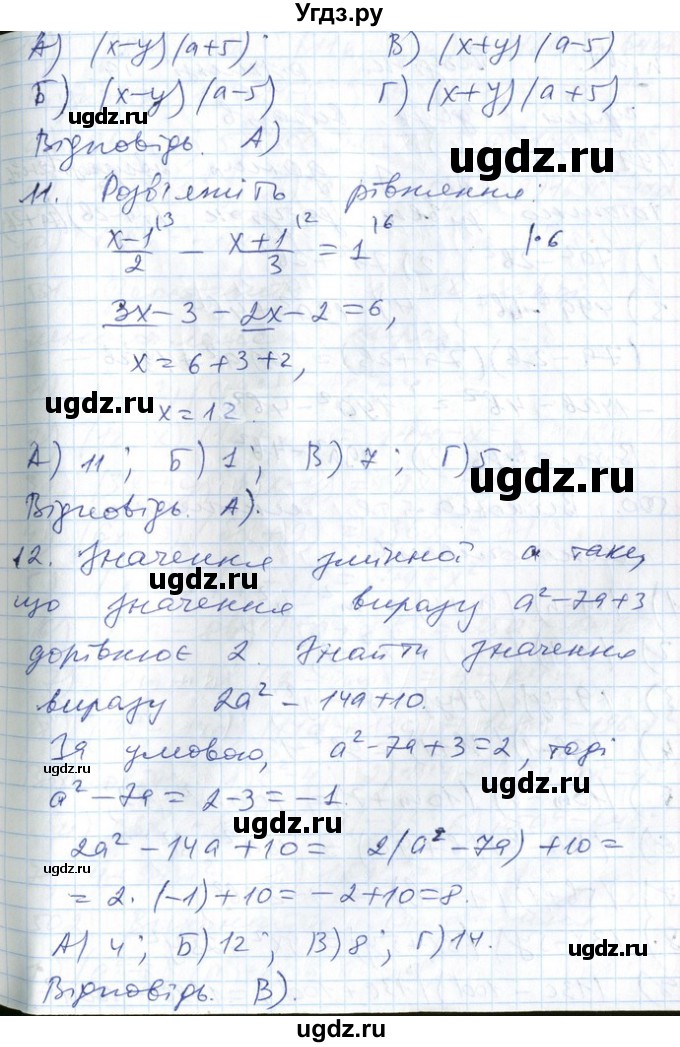 Угдз.ру
А) (x-y)(a+5); В) (x+y)(a-5)
Б) (x-y)(a-5) Г) (x+y)(a+5).
ugdz.ru
ugdz.ru
Відповідь. А)
11. Розв'яжіть рівняння:
ugdz.ru
(x-1)/2 |3 - (x+1)/3 |2 = 1 |6 |·6
3x-3-2x-2=6,
ugdz.ru
x=6+3+2,
ugdz.ru
x=12.
А) 11; Б) 1; В) 7; Г) 5.
ugdz.ru
Відповідь. А).
12. Значення змінної a таке,
ugdz.ru
що значення виразу a²-7a+3
дорівнює 2. Знайти значення
ugdz.ru
виразу 2a²-14a+10.
За умовою, a²-7a+3=2, тоді
ugdz.ru
ugdz.ru
a²-7a=2-3=-1.
ugdz.ru
2a²-14a+10= 2(a²-7a)+10=
ugdz.ru
=2·(-1)+10=-2+10=8.
А) 4; Б) 12; В) 8; Г) 14.
ugdz.ru
ugdz.ru
Відповідь. В).
ugdz.ru